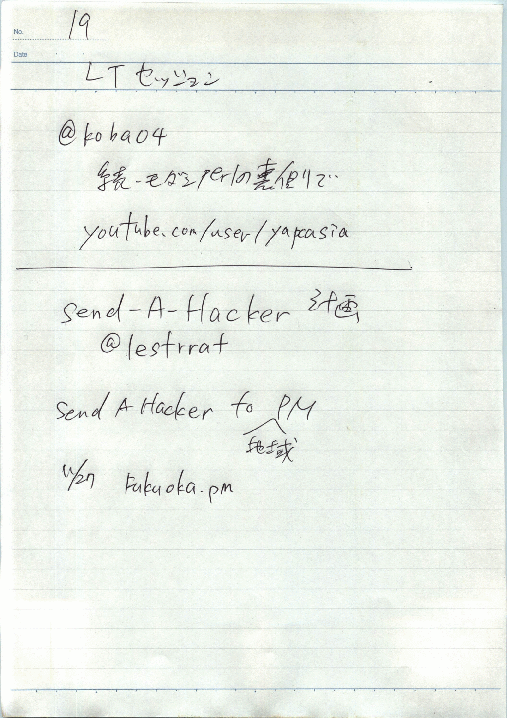 No. 19
Date
LT セッション
@koba04
続-モダンPerlの裏側で‥
youtube.com/user/yapcasia
Send-A-Hacker 計画
@lestrrat
Send A Hacker to PM
地域
11/27 Fukuoka.pm